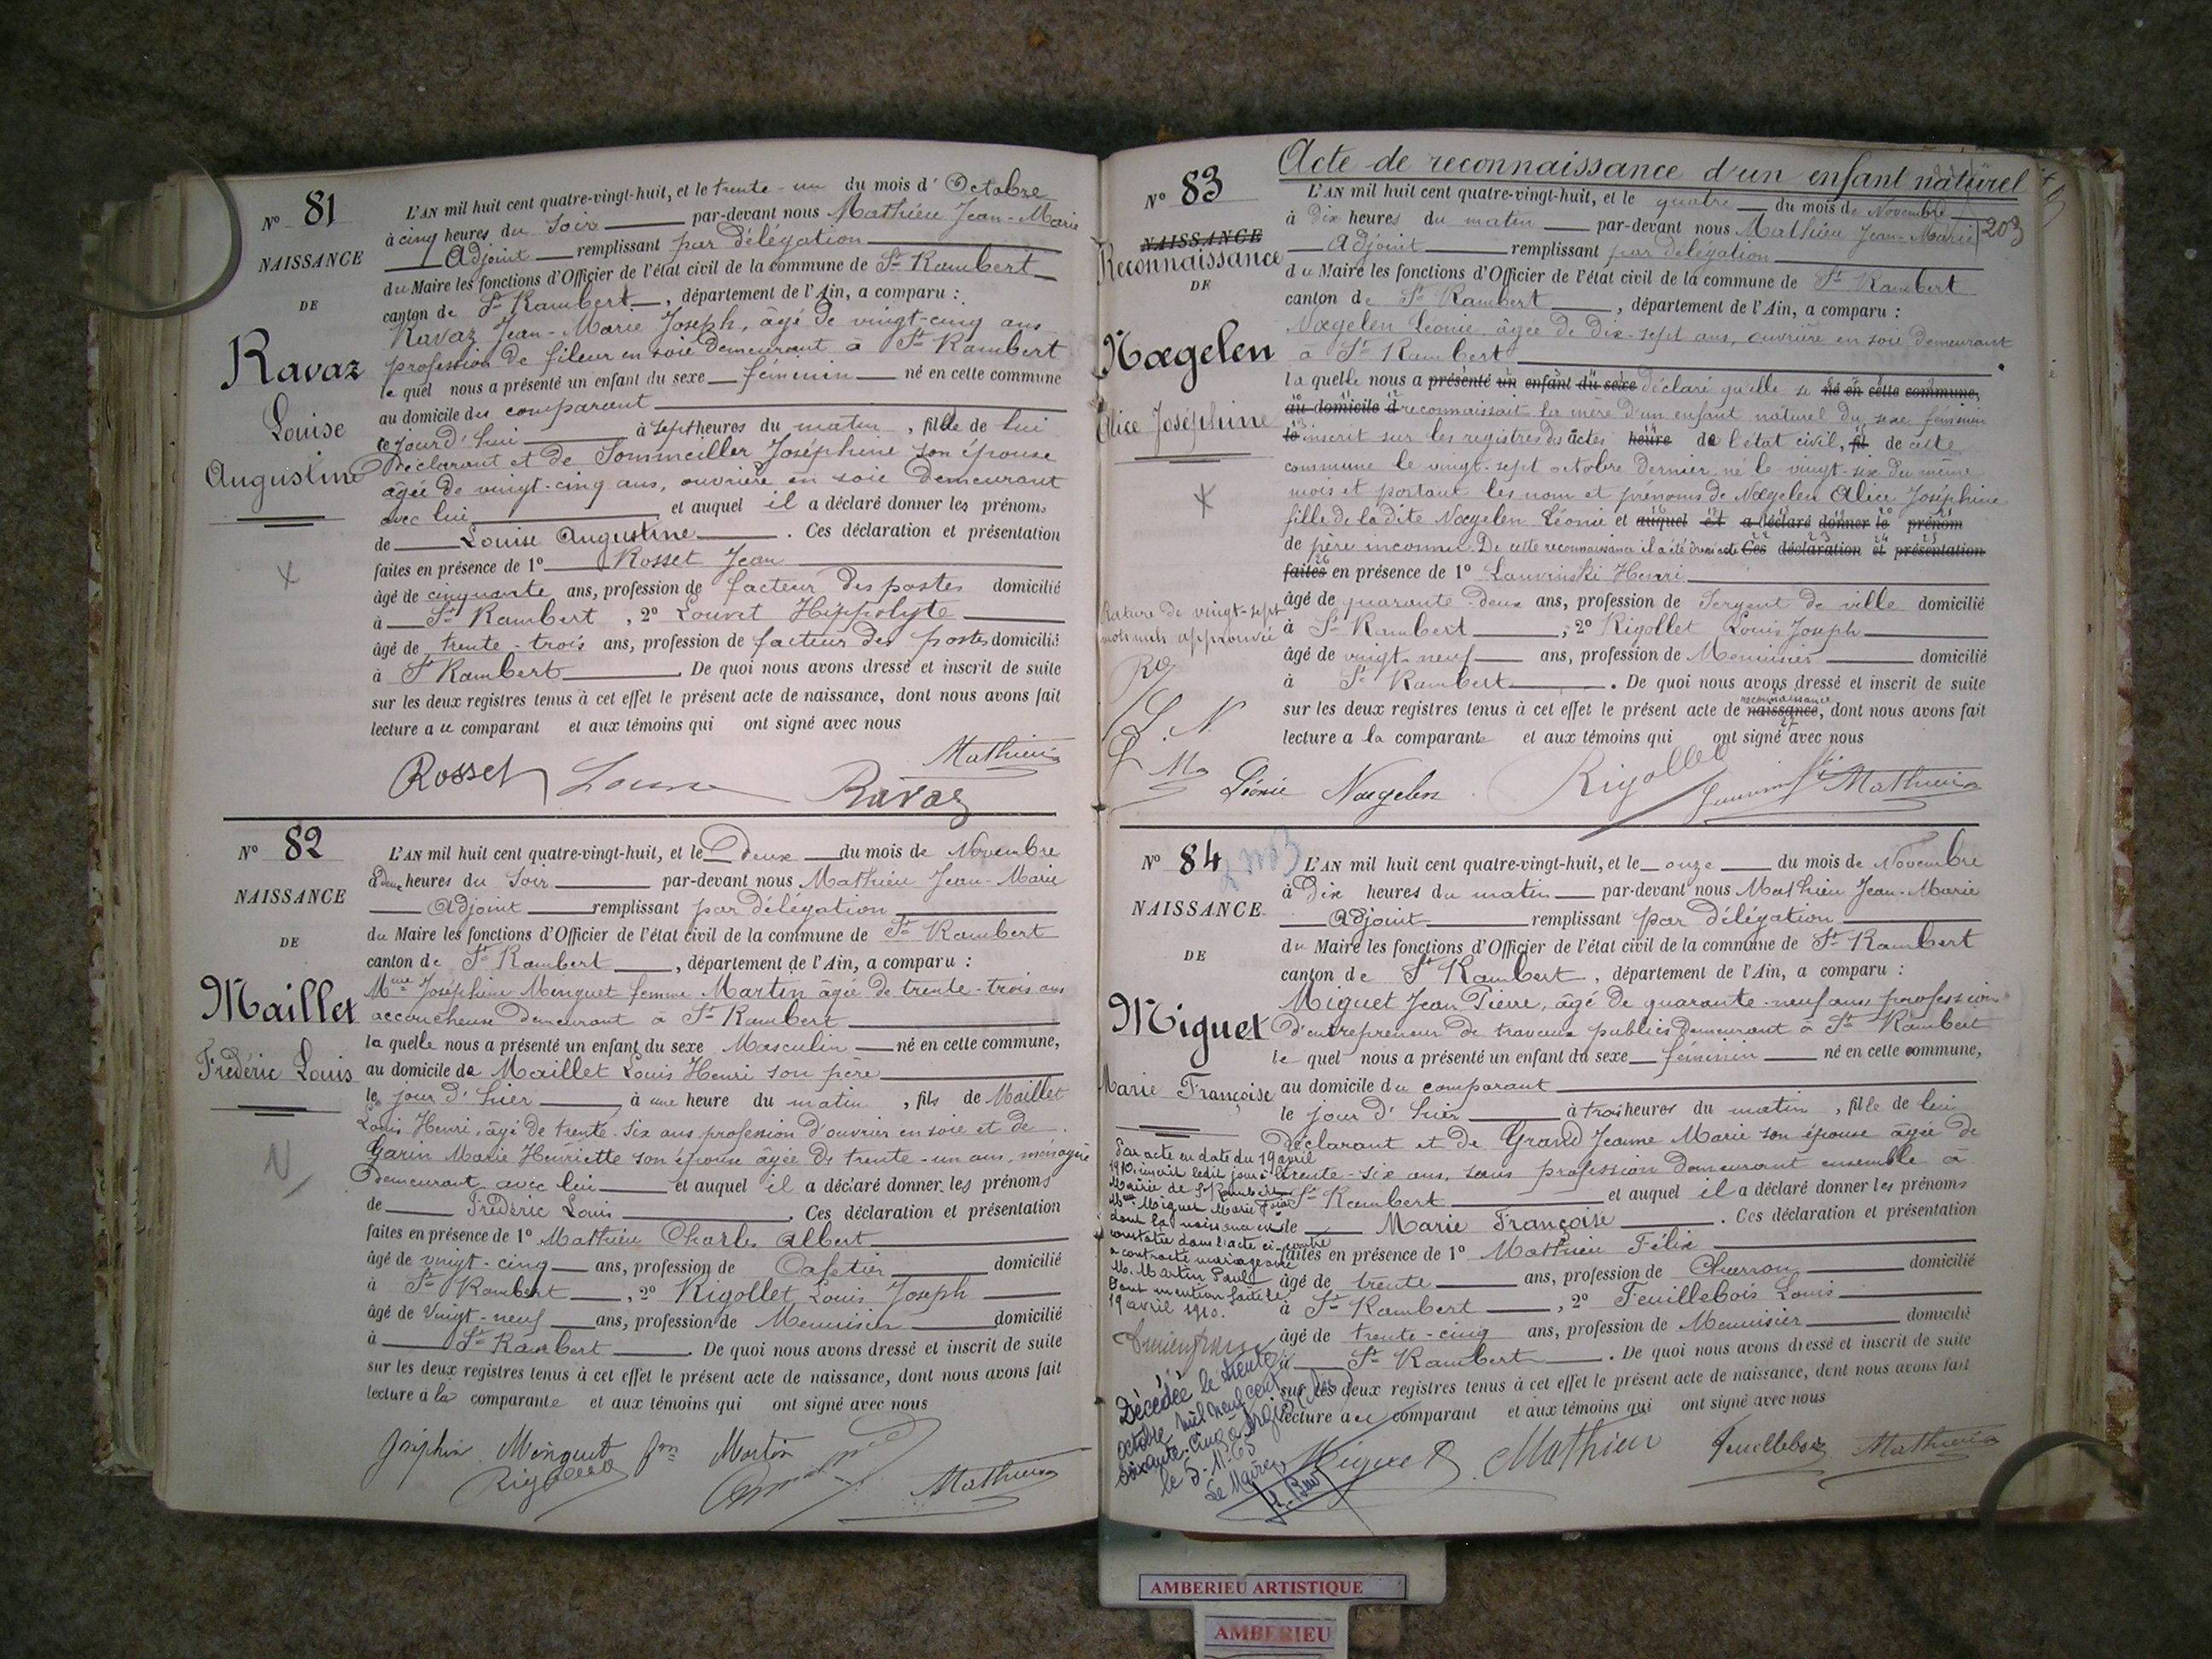 N° 81
NAISSANCE
DE
Ravaz
Louise
Augustine
L'AN mil huit cent quatre-vingt-huit, et le trente-un du mois d'Octobre
à cinq heures du Soir par-devant nous Mathieu Jean-Marie
Adjoint remplissant par délégation
du Maire les fonctions d'Officier de l'état civil de la commune de St Rambert
canton de St Rambert, département de l'Ain, a comparu :
Ravaz Jean-Marie Joseph, âgé de vingt-cinq ans
profession de fileur en soie demeurant à St Rambert
le quel nous a présenté un enfant du sexe féminin né en cette commune
au domicile du comparant
ce jour d'hui à sept heures du matin, fille de lui
déclarant et de Sommeiller Joséphine son épouse
âgée de vingt-cinq ans, ouvrière en soie demeurant
avec lui et auquel il a déclaré donner les prénoms
de Louise Augustine. Ces déclaration et présentation
faites en présence de 1° Rosset Jean
âgé de cinquante ans, profession de facteur des postes domicilié
à St Rambert, 2° Louvet Hippolyte
âgé de trente-trois ans, profession de facteur des postes domicilié
à St Rambert. De quoi nous avons dressé et inscrit de suite
sur les deux registres tenus à cet effet le présent acte de naissance, dont nous avons fait
lecture au comparant et aux témoins qui ont signé avec nous
Mathieu
Rosset Ravaz
N° 82
NAISSANCE
DE
Maillet
Frédéric Louis
L'AN mil huit cent quatre-vingt-huit, et le deux du mois de Novembre
à deux heures du Soir par-devant nous Mathieu Jean-Marie
Adjoint remplissant par délégation
du Maire les fonctions d'Officier de l'état civil de la commune de St Rambert
canton de St Rambert, département de l'Ain, a comparu :
Mme Joséphine Minguet femme Martin âgée de trente-trois ans
accoucheuse demeurant à St Rambert
la quelle nous a présenté un enfant du sexe Masculin né en cette commune,
au domicile de Maillet Louis Henri son père
le jour d'hier à une heure du matin, fils de Maillet
Louis Henri, âgé de trente-six ans profession d'ouvrier en soie et de
Garin Marie Henriette son épouse âgée de trente-un ans, ménagère
demeurant avec lui et auquel il a déclaré donner les prénoms
de Frédéric Louis. Ces déclaration et présentation
faites en présence de 1° Mathieu Charles Albert
âgé de vingt-cinq ans, profession de Cafetier domicilié
à St Rambert, 2° Rigollet Louis Joseph
âgé de Vingt-neuf ans, profession de Menuisier domicilié
à St Rambert. De quoi nous avons dressé et inscrit de suite
sur les deux registres tenus à cet effet le présent acte de naissance, dont nous avons fait
lecture à la comparante et aux témoins qui ont signé avec nous
Joséphine Minguet fme Martin
Rigollet Mathieu
Acte de reconnaissance d'un enfant naturel
203
N° 83
NAISSANCE
Reconnaissance
DE
Nægelen
Alice Joséphine
L'AN mil huit cent quatre-vingt-huit, et le quatre du mois de Novembre
à dix heures du matin par-devant nous Mathieu Jean-Marie
Adjoint remplissant par délégation
du Maire les fonctions d'Officier de l'état civil de la commune de St Rambert
canton de St Rambert, département de l'Ain, a comparu :
Nægelen Léonie âgée de dix-sept ans, ouvrière en soie demeurant
à St Rambert
la quelle nous a présenté un enfant du sexe déclaré qu'elle se né en cette commune,
au domicile d reconnaissait la mère d'un enfant naturel du sexe féminin
le inscrit sur les registres des actes heure de l'état civil, fil de cette
commune le vingt-sept octobre dernier né le vingt-six du même
mois et portant les nom et prénoms de Nægelen Alice Joséphine
fille de la dite Nægelen Léonie et auquel il a déclaré donner le prénom
de père inconnu. De cette reconnaissance il a été donné acte Ces déclaration et présentation
faites en présence de 1° Lauvinski Henri
âgé de quarante-deux ans, profession de Sergent de ville domicilié
à St Rambert, 2° Rigollet Louis Joseph
âgé de vingt-neuf ans, profession de Menuisier domicilié
à St Rambert. De quoi nous avons dressé et inscrit de suite
sur les deux registres tenus à cet effet le présent acte de naissance reconnaissance, dont nous avons fait
lecture a la comparante et aux témoins qui ont signé avec nous
Rature de vingt-sept
mots nuls approuvée
L. N.
Léonie Nægelen Rigollet Mathieu
N° 84
NAISSANCE
DE
Miguet
Marie Françoise
L'AN mil huit cent quatre-vingt-huit, et le onze du mois de Novembre
à dix heures du matin par-devant nous Mathieu Jean-Marie
Adjoint remplissant par délégation
du Maire les fonctions d'Officier de l'état civil de la commune de St Rambert
canton de St Rambert, département de l'Ain, a comparu :
Miguet Jean Pierre, âgé de quarante-neuf ans profession
d'entrepreneur de travaux publics demeurant à St Rambert
le quel nous a présenté un enfant du sexe féminin né en cette commune,
au domicile du comparant
le jour d'hier à trois heures du matin, fille de lui
déclarant et de Grand Jeanne Marie son épouse âgée de
trente-six ans, sans profession demeurant ensemble à
St Rambert et auquel il a déclaré donner les prénoms
de Marie Françoise. Ces déclaration et présentation
faites en présence de 1° Mathieu Félix
âgé de trente ans, profession de Charron domicilié
à St Rambert, 2° Feuillebois Louis
âgé de trente-cinq ans, profession de Menuisier domicilié
à St Rambert. De quoi nous avons dressé et inscrit de suite
sur les deux registres tenus à cet effet le présent acte de naissance, dont nous avons fait
lecture au comparant et aux témoins qui ont signé avec nous
Par acte en date du 19 avril
1910, inscrit ledit jour à la
Mairie de St Rambert
Miguet Marie Fçoise
dont la naissance est
constatée dans l'acte ci-contre
a contracté mariage avec
M. Martin Paul
Dont mention faite le
19 avril 1910.
Décédée le trente
octobre mil neuf cent
soixante-cinq à Argis (Ain)
le 5-11-65
Le Maire,
Miguet Mathieu Feuillebois Mathieu
AMBERIEU ARTISTIQUE
AMBERIEU